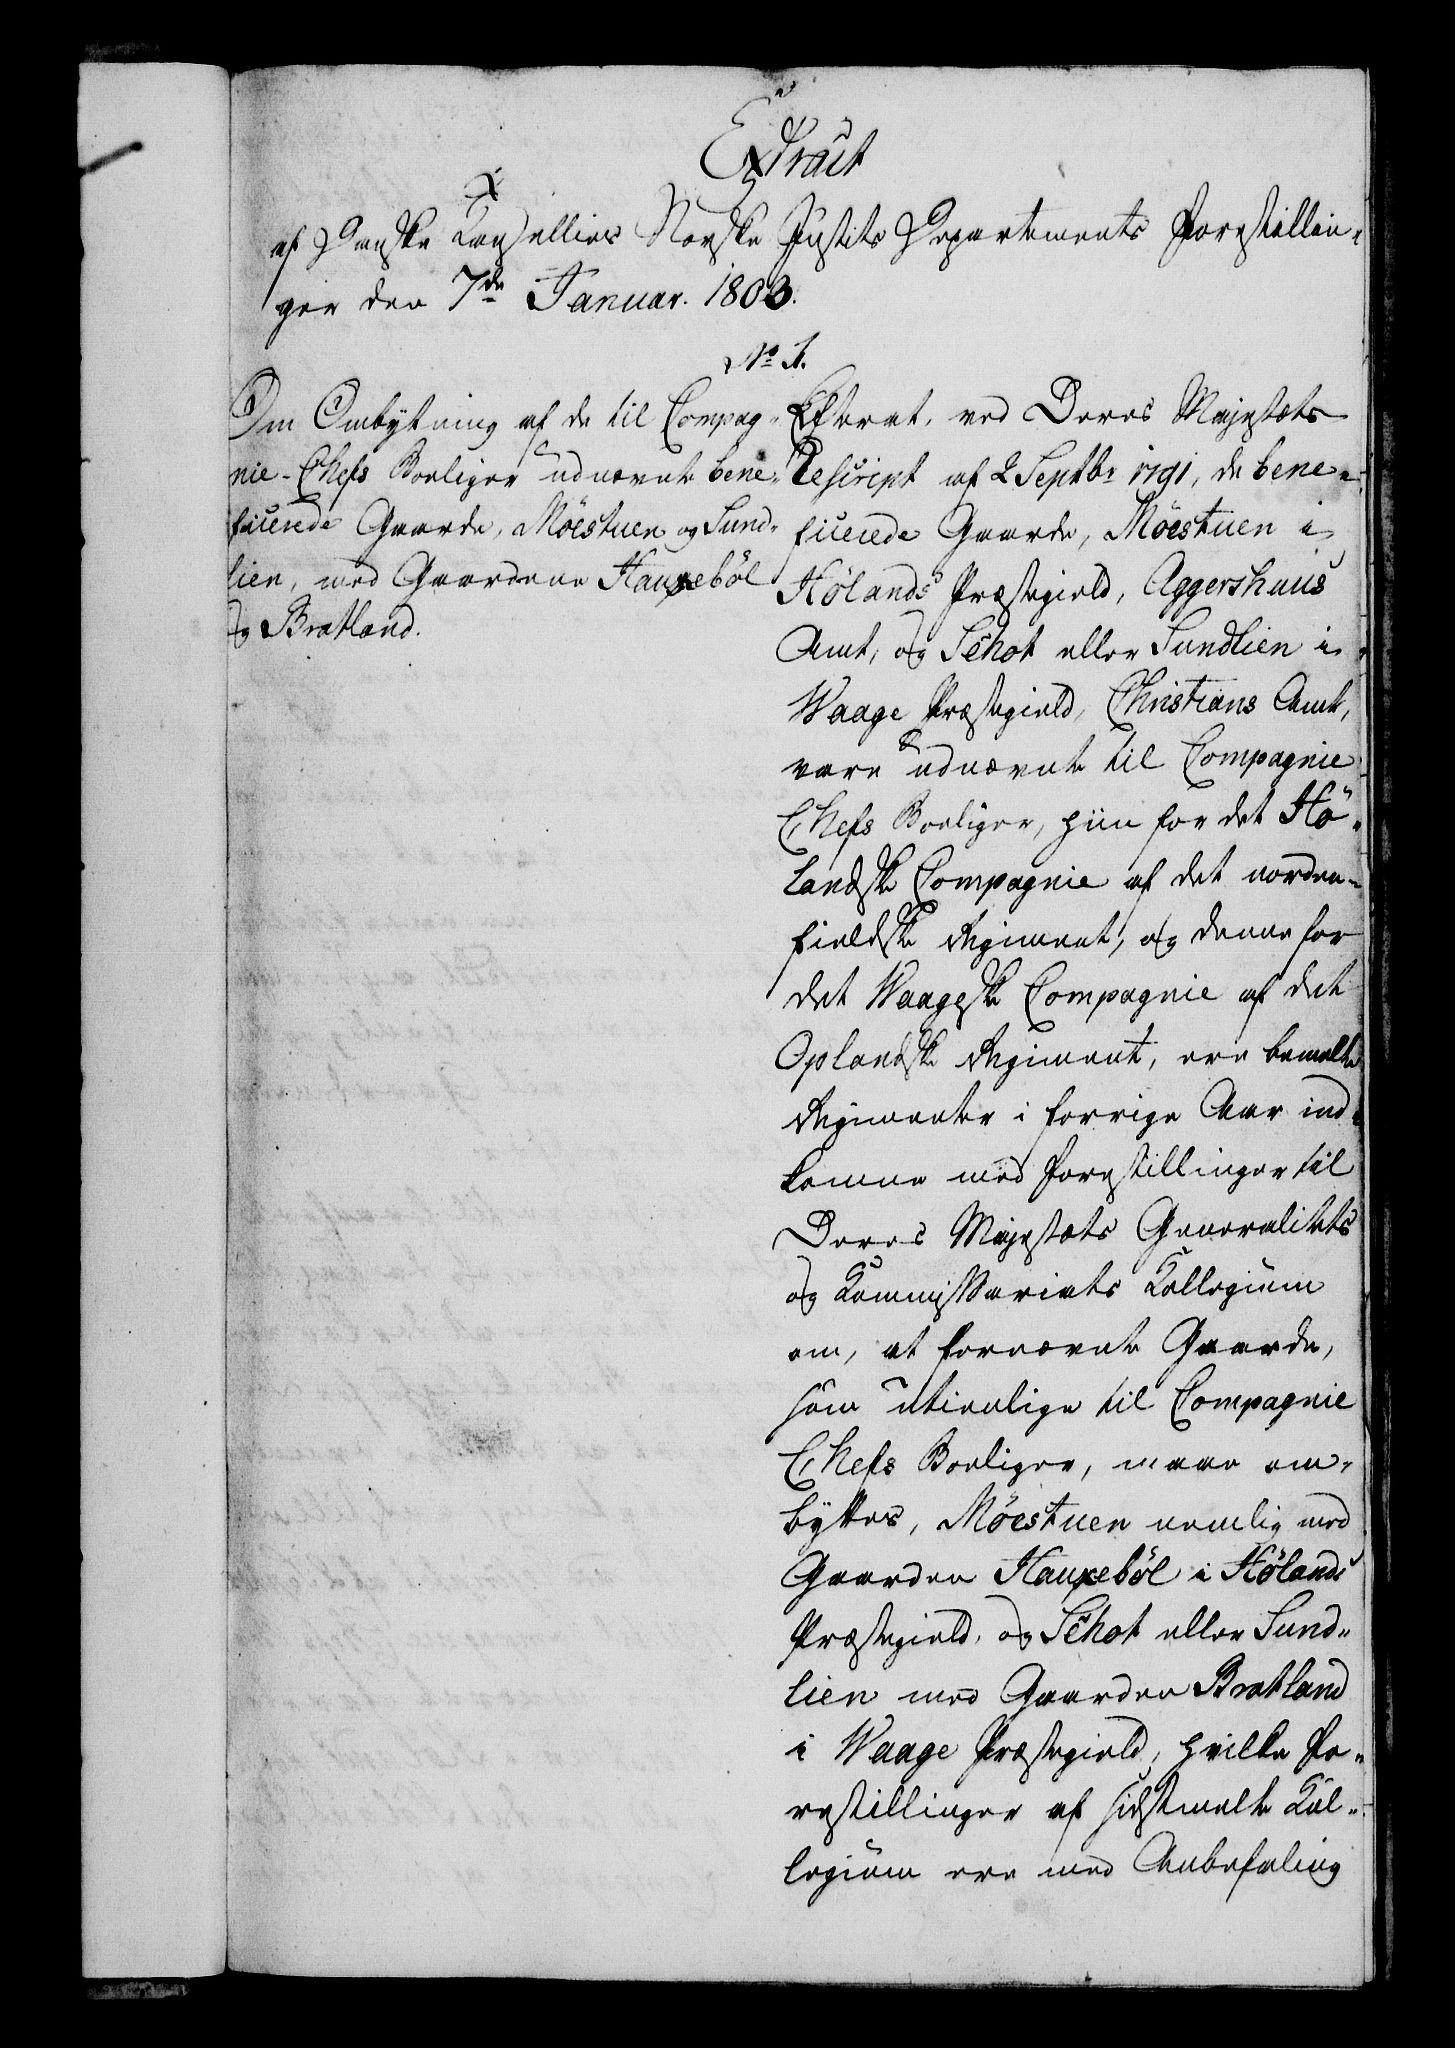 Extract
af Danske Kancellies Norske Justits Departements Forestillin-
ger den 7de Januar. 1803.
No 1.
Om Ombytning af de til Compag-
nie-Chefs Boeliger udnævnte bene-
ficerede Gaarde, Möestuen og Sund-
lien, med Gaardene Hauxeböl
og Bratland.
Efterat, ved Deres Majestæts
Rescript af 2 Septbr 1791, de bene-
ficerede Gaarde, Möestuen i
Hölands Præstegield, Aggershuus
Amt, og Schot eller Sundlien i
Waage Præstegield, Christians Amt,
vare udnævnte til Compagnie
Chefs Boeliger, hiin for det Hö-
landske Compagnie af det norden-
fieldske Regiment, og denne for
det Waageske Compagnie af det
Oplandske Regiment, ere bemelte
Regimenter i forrige Aar ind-
komne med Forestillinger til
Deres Majestæts Generalitets
og Kommissariats Collegium
om, at fornævnte Gaarde,
som utienlige til Compagnie
Chefs Boeliger, maae om-
byttes, Möestuen nemlig med
Gaarden Hauxeböl i Hölands
Præstegield, og Schot eller Sund-
lien med Gaarden Bratland
i Waage Præstegield, hvilke Fo-
restillinger af sidstmelte Col-
legium ere med Anbefaling